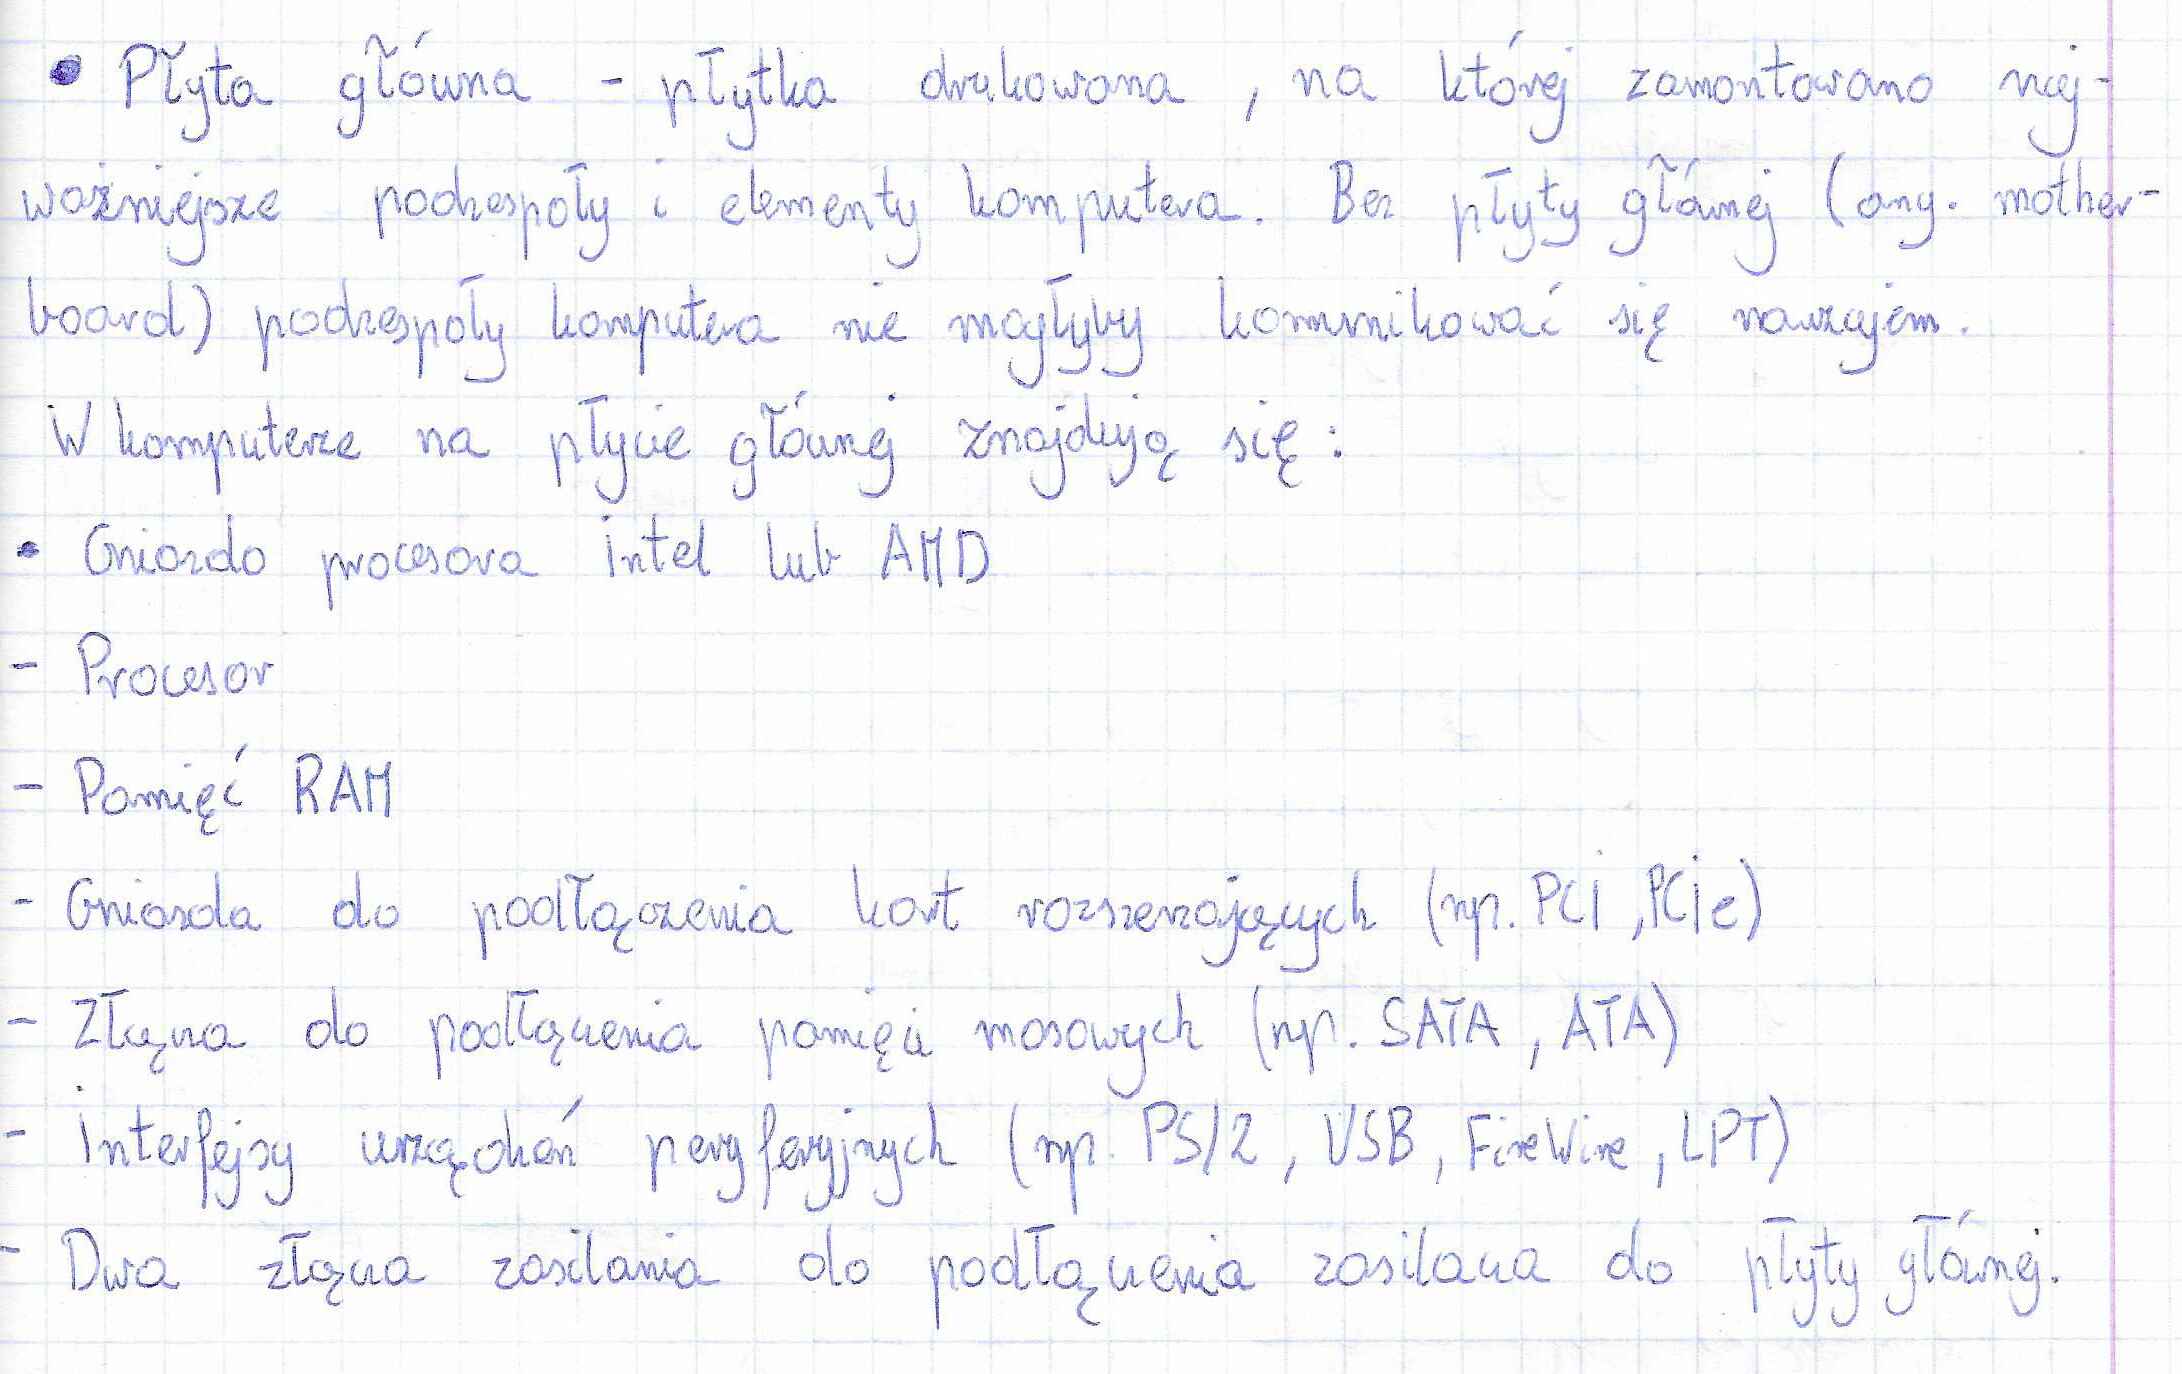 • Płyta główna - płytka drukowana, na której zamontowano naj-
ważniejsze podzespoły i elementy komputera. Bez płyty głównej (ang. mother-
board) podzespoły komputera nie mogłyby komunikować się nawzajem.
W komputerze na płycie głównej znajdują się:
• Gniazdo procesora intel lub AMD
- Procesor
- Pamięć RAM
- Gniazda do podłączenia kart rozszerzających (np. PCI, PCIe)
- Złącza do podłączenia pamięci masowych (np. SATA, ATA)
- Interfejsy urządzeń peryferyjnych (np. PS/2, USB, FireWire, LPT)
- Dwa złącza zasilania do podłączenia zasilacza do płyty głównej.